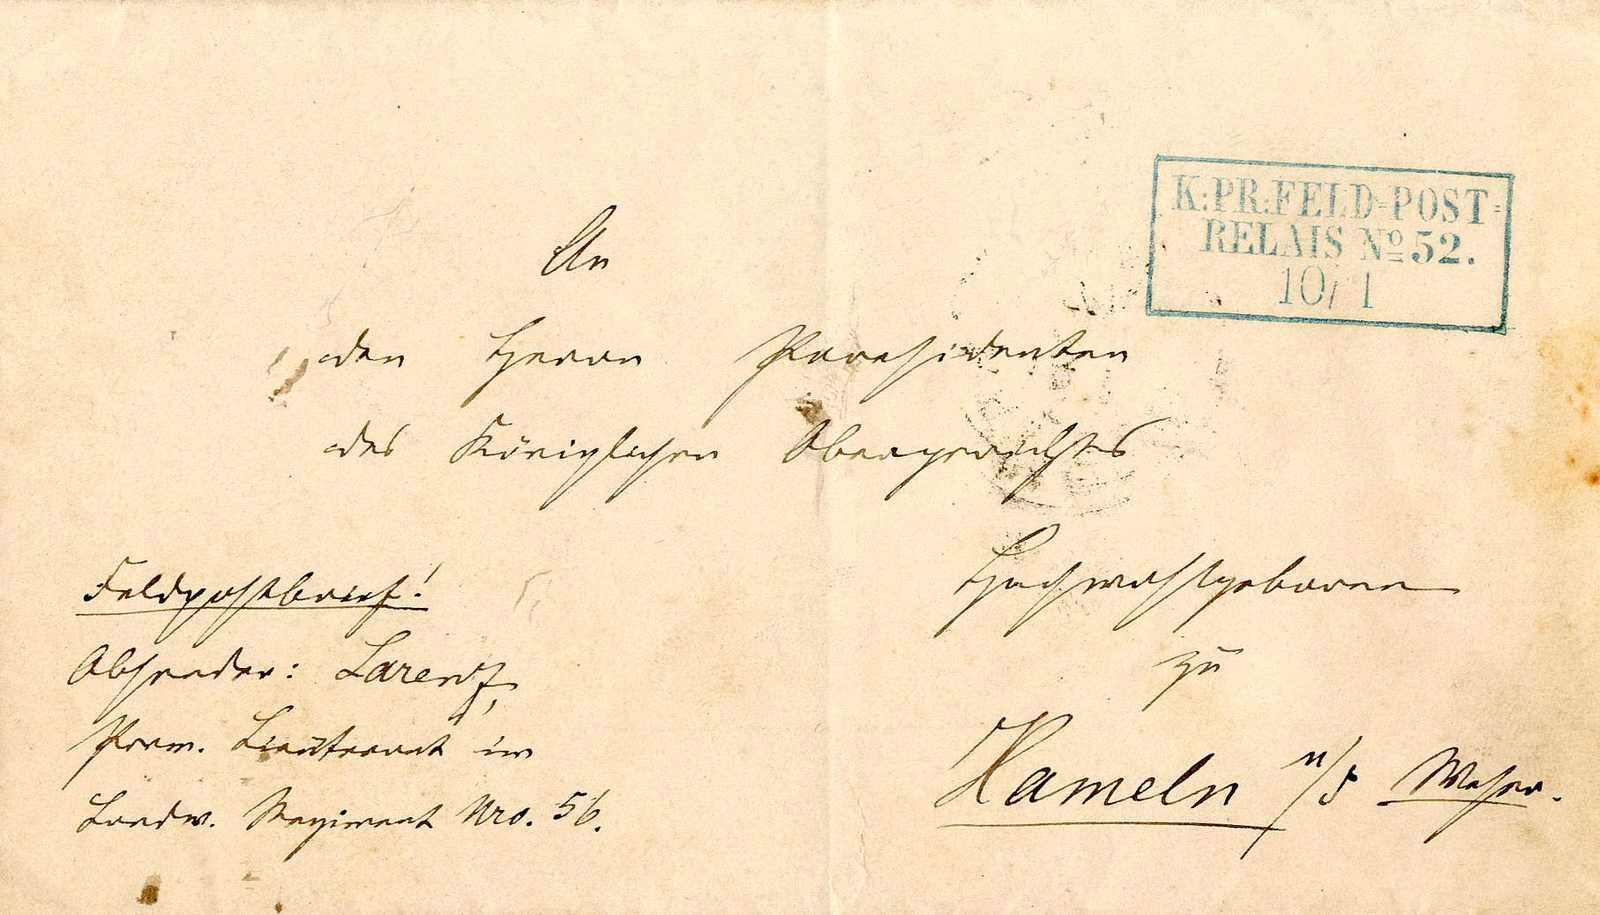 K:PR:FELD=POST=
RELAIS No 52.
10/1
An
den Herrn Praesidenten
des Königlichen Obergerichts
Hochwohlgeboren
zu
Hameln a/d Weser.
Feldpostbrief!
Absender: Larenz,
Prem. Lieutenant im
Landw. Regiment Nro. 56.